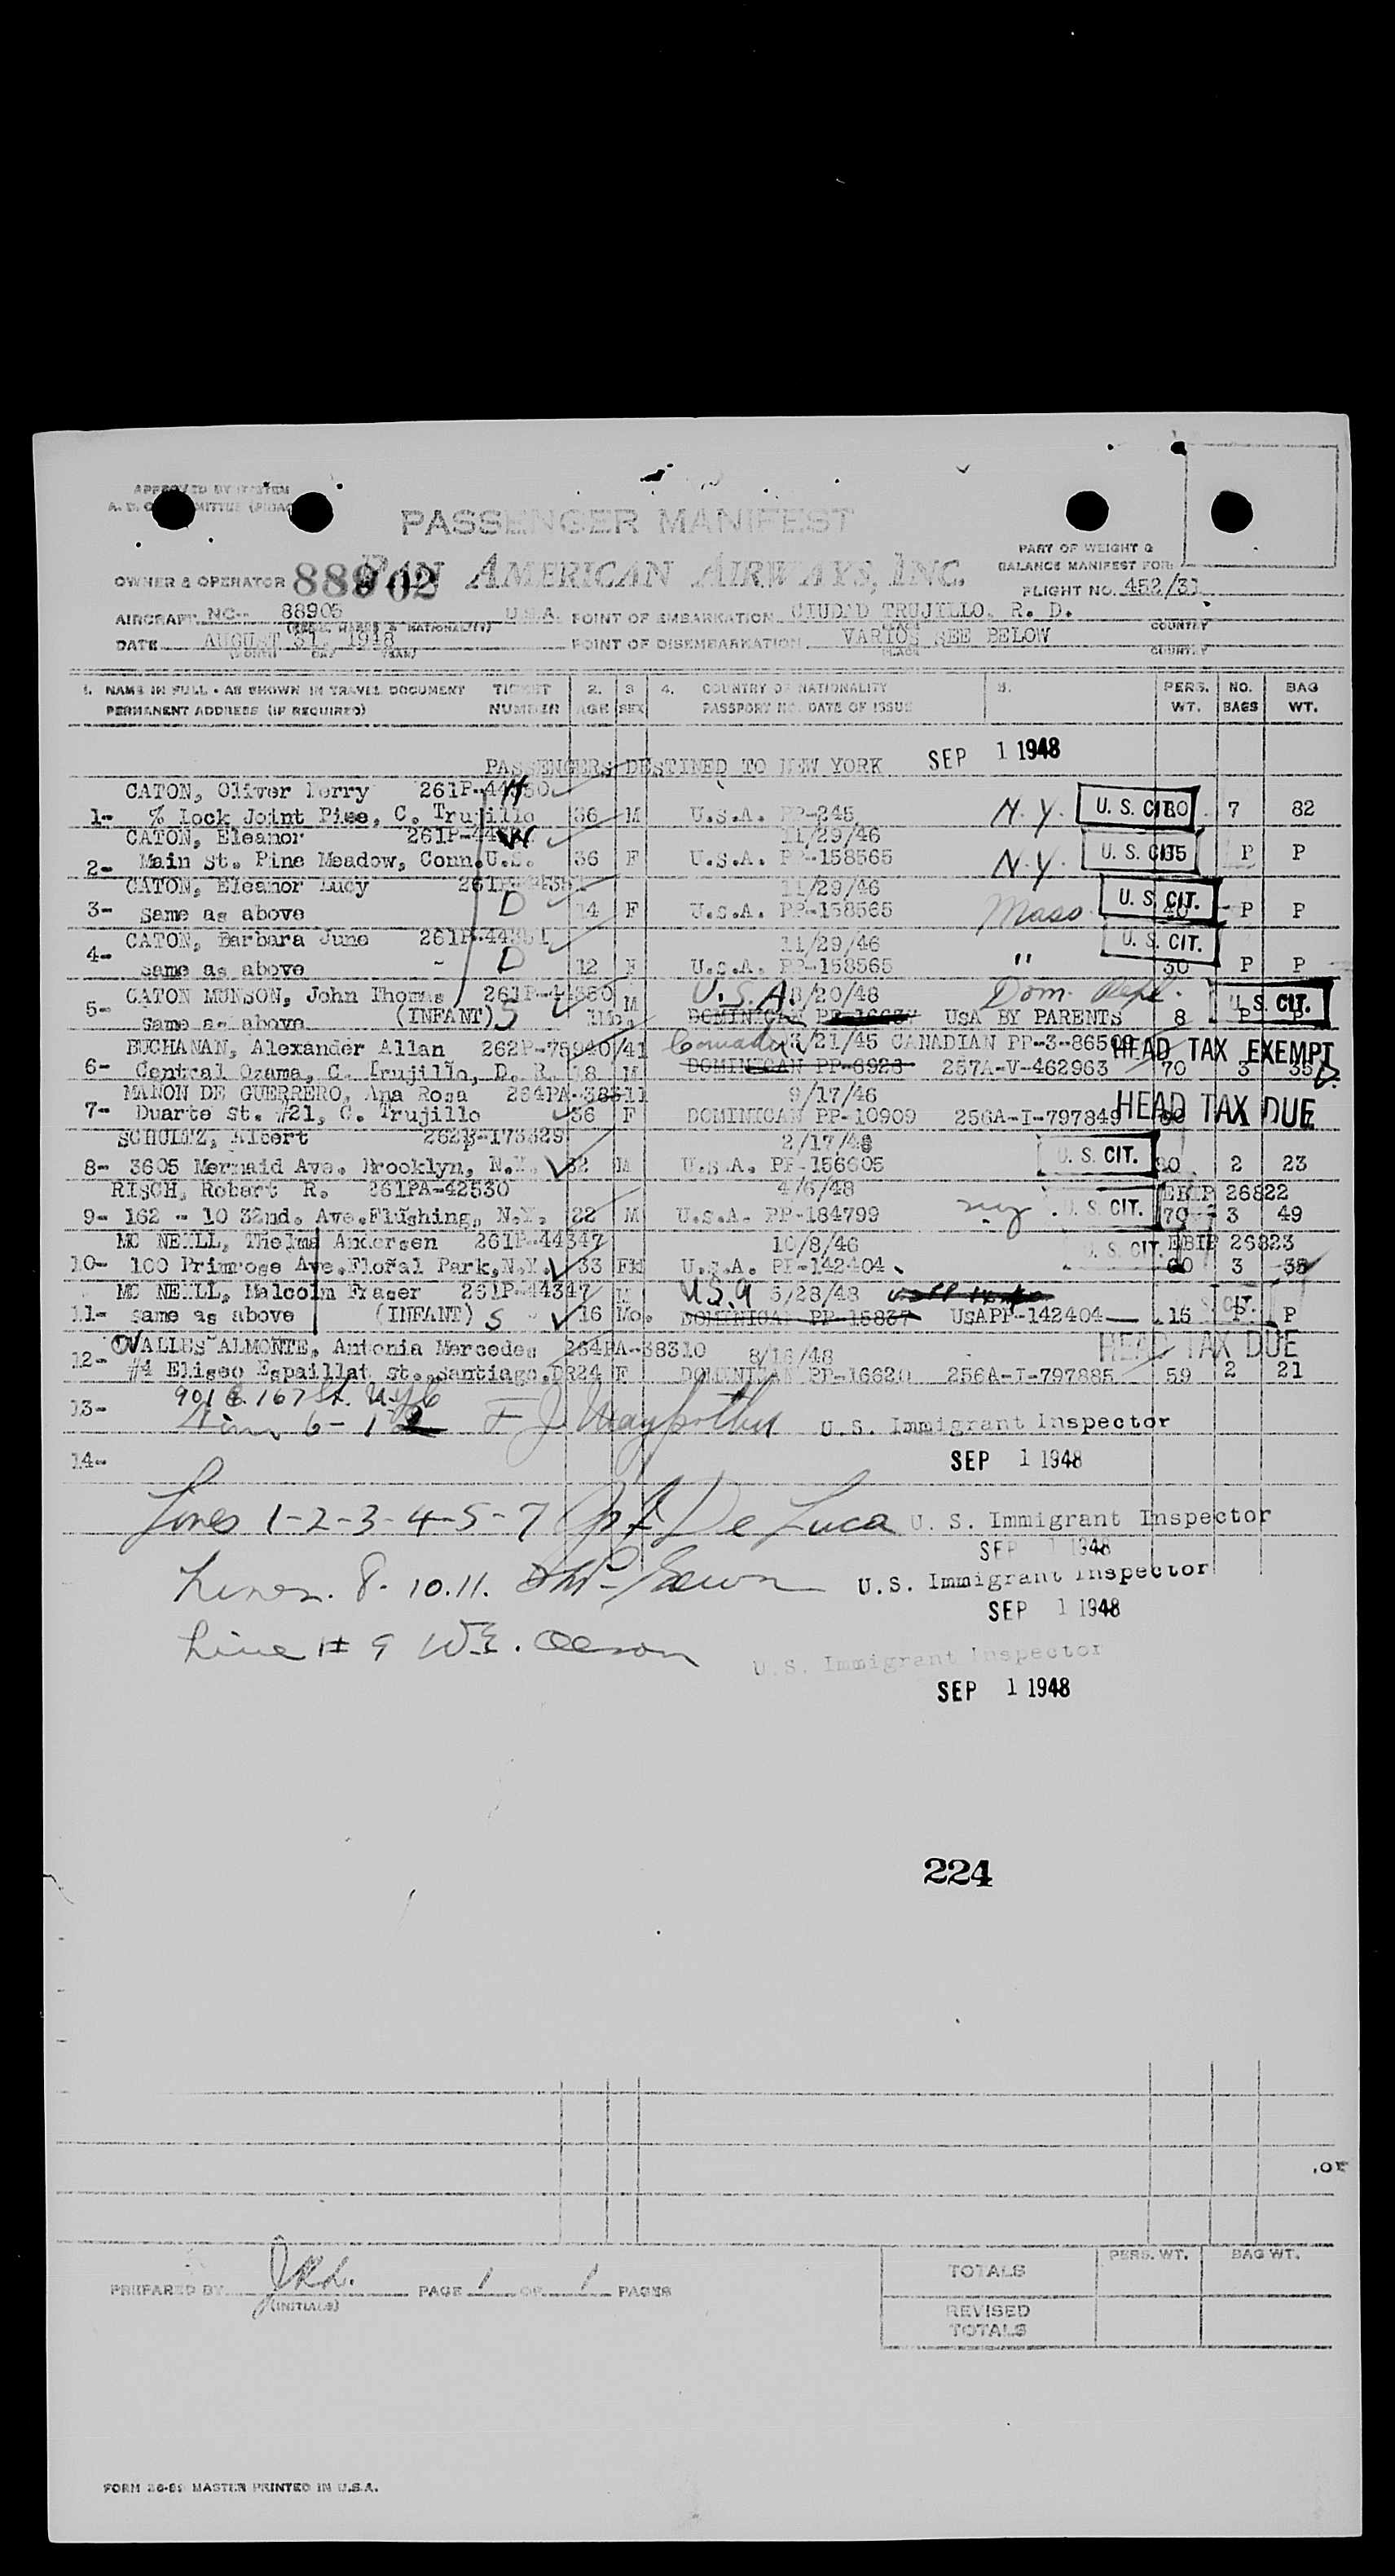 APPROVED BY SYSTEM
PASSENGER MANIFEST
PART OF WEIGHT &
BALANCE MANIFEST FOR:
OWNER & OPERATOR 88902 PAN AMERICAN AIRWAYS, INC.
FLIGHT NO. 452/31
AIRCRAFT NC- 88905 U.S.A. POINT OF EMBARKATION CIUDAD TRUJILLO, R. D.
(REGIS. MARKS & NATIONALITY) PLACE COUNTRY
DATE AUGUST 31, 1948 POINT OF DISEMBARKATION VARIOS SEE BELOW
(MONTH DAY YEAR) PLACE COUNTRY
1. NAME IN FULL - AS SHOWN IN TRAVEL DOCUMENT TICKET 2. 3 4. COUNTRY OF NATIONALITY 5. PERS. NO. BAG
PERMANENT ADDRESS (IF REQUIRED) NUMBER AGE SEX PASSPORT NO. DATE OF ISSUE WT. BAGS WT.
SEP 1 1948
PASSENGERS DESTINED TO NEW YORK
CATON, Oliver Perry H
1- % Lock Joint Pipe, C. Trujillo 36 M U.S.A. PP-245 N.Y. U. S. CIT. 7 82
CATON, Eleanor W 11/29/46
2- Main St. Pine Meadow, Conn. U.S. 36 F U.S.A. PP-158565 N.Y. U. S. CIT. P P
CATON, Eleanor Lucy 11/29/46
3- Same as above D 14 F U.S.A. PP-158565 Mass U. S. CIT. P P
CATON, Barbara June 261P-44351 11/29/46 U. S. CIT.
4- same as above D 12 F U.S.A. PP-158565 " 30 P P
CATON MUNSON, John Thomas 261P-44350 M U.S.A. 8/20/48 Dom. Repl. U. S. CIT.
5- Same as above (INFANT) S 1Mo. DOMINICAN USA BY PARENTS 8 P P
BUCHANAN, Alexander Allan 262P-75940/41 Canada 3/21/45 CANADIAN HEAD TAX EXEMPT
6- Central Ozama, C. Trujillo, D. R. 18 M DOMINICAN PP-6923 257A-V-462963 70 3 35
MANON DE GUERRERO, Ana Rosa 264PA-38311 9/17/46 HEAD TAX DUE
7- Duarte St. #21, C. Trujillo 36 F DOMINICAN PP-10909 256A-I-797849
SCHULTZ, Albert 2/17/48
8- 3605 Mermaid Ave. Brooklyn, N.Y. 32 M U.S.A. PP-156605 U. S. CIT. 2 23
RISCH, Robert R. 261PA-42530 4/6/48 EBIP 26822
9- 162 - 10 32nd. Ave. Flushing, N.Y. 22 M U.S.A. PP-184799 ny U. S. CIT. 70 3 49
MC NEILL, Thelma Andersen 261P-44347 10/8/46 U. S. CIT. EBIP 26823
10- 100 Primrose Ave. Floral Park, N.Y. 33 F U.S.A. PP-142404 60 3 35
MC NEILL, Malcolm Fraser 261P-44347 M USA 5/28/48
11- same as above (INFANT) S 16 Mo. DOMINICAN PP-15837 USAPP-142404 15 P P
OVALLES ALMONTE, Antonia Mercedes 264PA-38310 8/16/48 HEAD TAX DUE
12- #4 Eliseo Espaillat st. Santiago, DR 24 F DOMINICAN PP-16620 256A-I-797885 59 2 21
901 E. 167 St. NYC
13- 6-12 U.S. Immigrant Inspector
14- SEP 1 1948
Lines 1-2-3-4-5-7 De Luca U. S. Immigrant Inspector
SEP 1 1948
Lines. 8. 10. 11. U.S. Immigrant Inspector
SEP 1 1948
Line # 9 W.E. Oleson U.S. Immigrant Inspector
SEP 1 1948
224
PERS. WT. BAG WT.
TOTALS
PREPARED BY PAGE 1 OF 1 PAGES
(INITIALS)
REVISED
TOTALS
FORM MASTER PRINTED IN U.S.A.